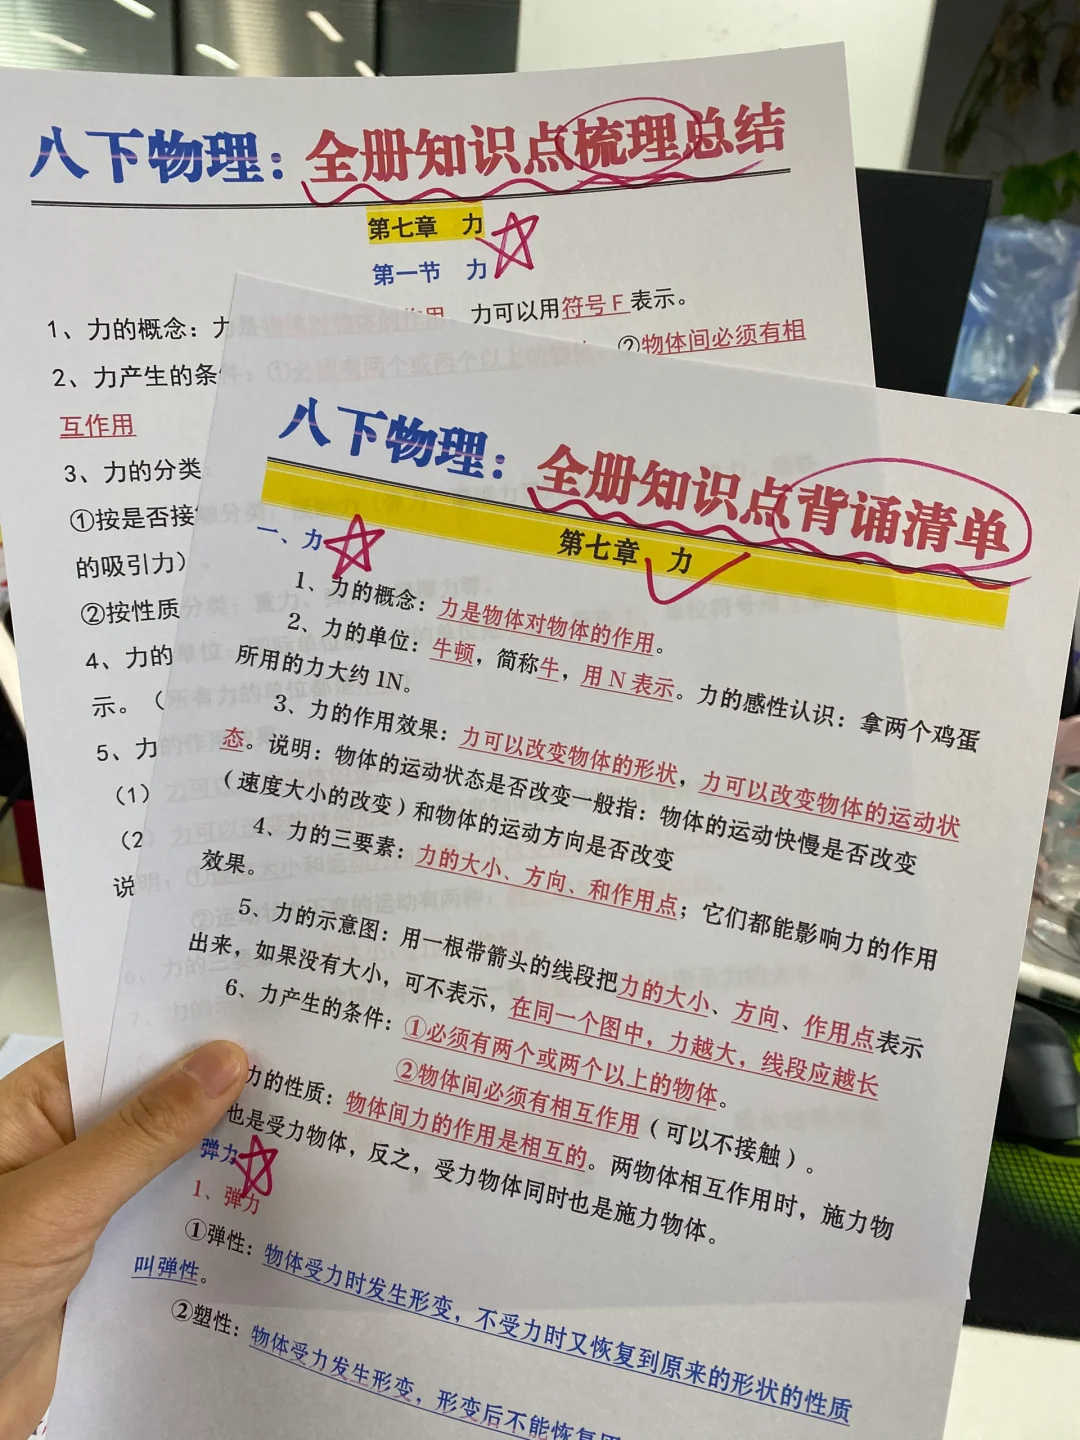 八下物理：全册知识点梳理总结
第七章 力
第一节 力
1、力的概念：力是物体对物体的作用。力可以用符号 F 表示。
2、力产生的条件：①必须有两个或两个以上的物体。②物体间必须有相
互作用
3、力的分类
①按是否接
的吸引力）。
②按性质
4、力的
示。（
5、力
（1）
（2
说
八下物理：全册知识点背诵清单
第七章 力
一、力
1、力的概念：力是物体对物体的作用。
2、力的单位：牛顿，简称牛，用 N 表示。力的感性认识：拿两个鸡蛋
所用的力大约 1N。
3、力的作用效果：力可以改变物体的形状，力可以改变物体的运动状
态。说明：物体的运动状态是否改变一般指：物体的运动快慢是否改变
（速度大小的改变）和物体的运动方向是否改变
4、力的三要素：力的大小、方向、和作用点；它们都能影响力的作用
效果。
5、力的示意图：用一根带箭头的线段把力的大小、方向、作用点表示
出来，如果没有大小，可不表示，在同一个图中，力越大，线段应越长
6、力产生的条件：①必须有两个或两个以上的物体。
②物体间必须有相互作用（可以不接触）。
力的性质：物体间力的作用是相互的。两物体相互作用时，施力物
也是受力物体，反之，受力物体同时也是施力物体。
弹力
1、弹力
①弹性：物体受力时发生形变，不受力时又恢复到原来的形状的性质
叫弹性。
②塑性：物体受力发生形变，形变后不能恢复